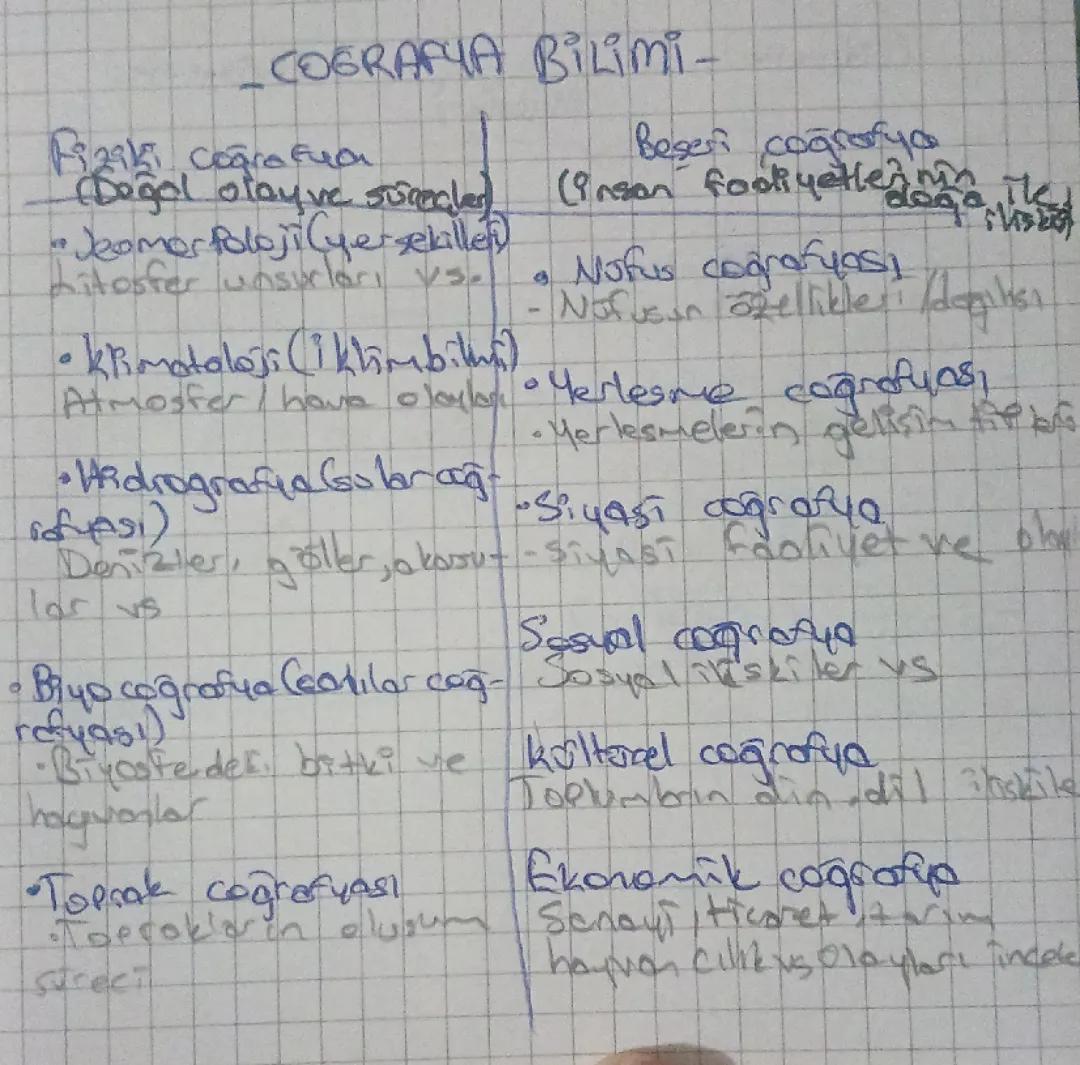 - COĞRAFYA BİLİMİ -
Fiziki coğrafya
(Doğal olay ve süreçler)
• Jeomorfoloji (yer şekilleri)
Litosfer unsurları vs.
• Klimatoloji (iklimbilimi)
Atmosfer / hava olayları
• Hidrografya (sular coğ-
rafyası)
Denizler, göller, akarsu-
lar vs
• Biyocoğrafya (canlılar coğ-
rafyası)
• Biyosferdeki bitki ve
hayvanlar
• Toprak coğrafyası
• Toprakların oluşum
süreci
Beşeri coğrafya
(İnsan faaliyetlerinin
doğa ile
ilişkisi)
• Nüfus coğrafyası
- Nüfusun özellikleri / dağılışı
• Yerleşme coğrafyası
• Yerleşmelerin gelişim
• Siyasi coğrafya
- Siyasi faaliyet ve olay
Sosyal coğrafya
Sosyal ilişkiler vs
Kültürel coğrafya
Toplumların din, dil ilişkile
Ekonomik coğrafya
Sanayi, ticaret, tarım
hayvancılık vs olayları incele